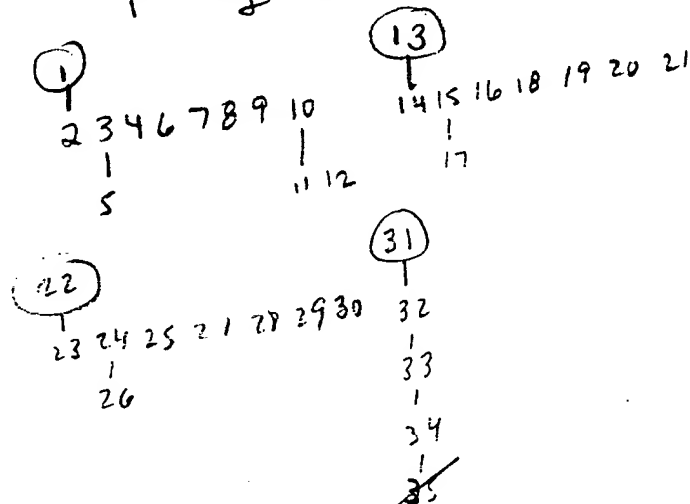 1
2 3 4 6 7 8 9 10
5
11 12
13
14 15 16 18 19 20 21
17
22
23 24 25 28 29 30
26
31
32
33
34
35